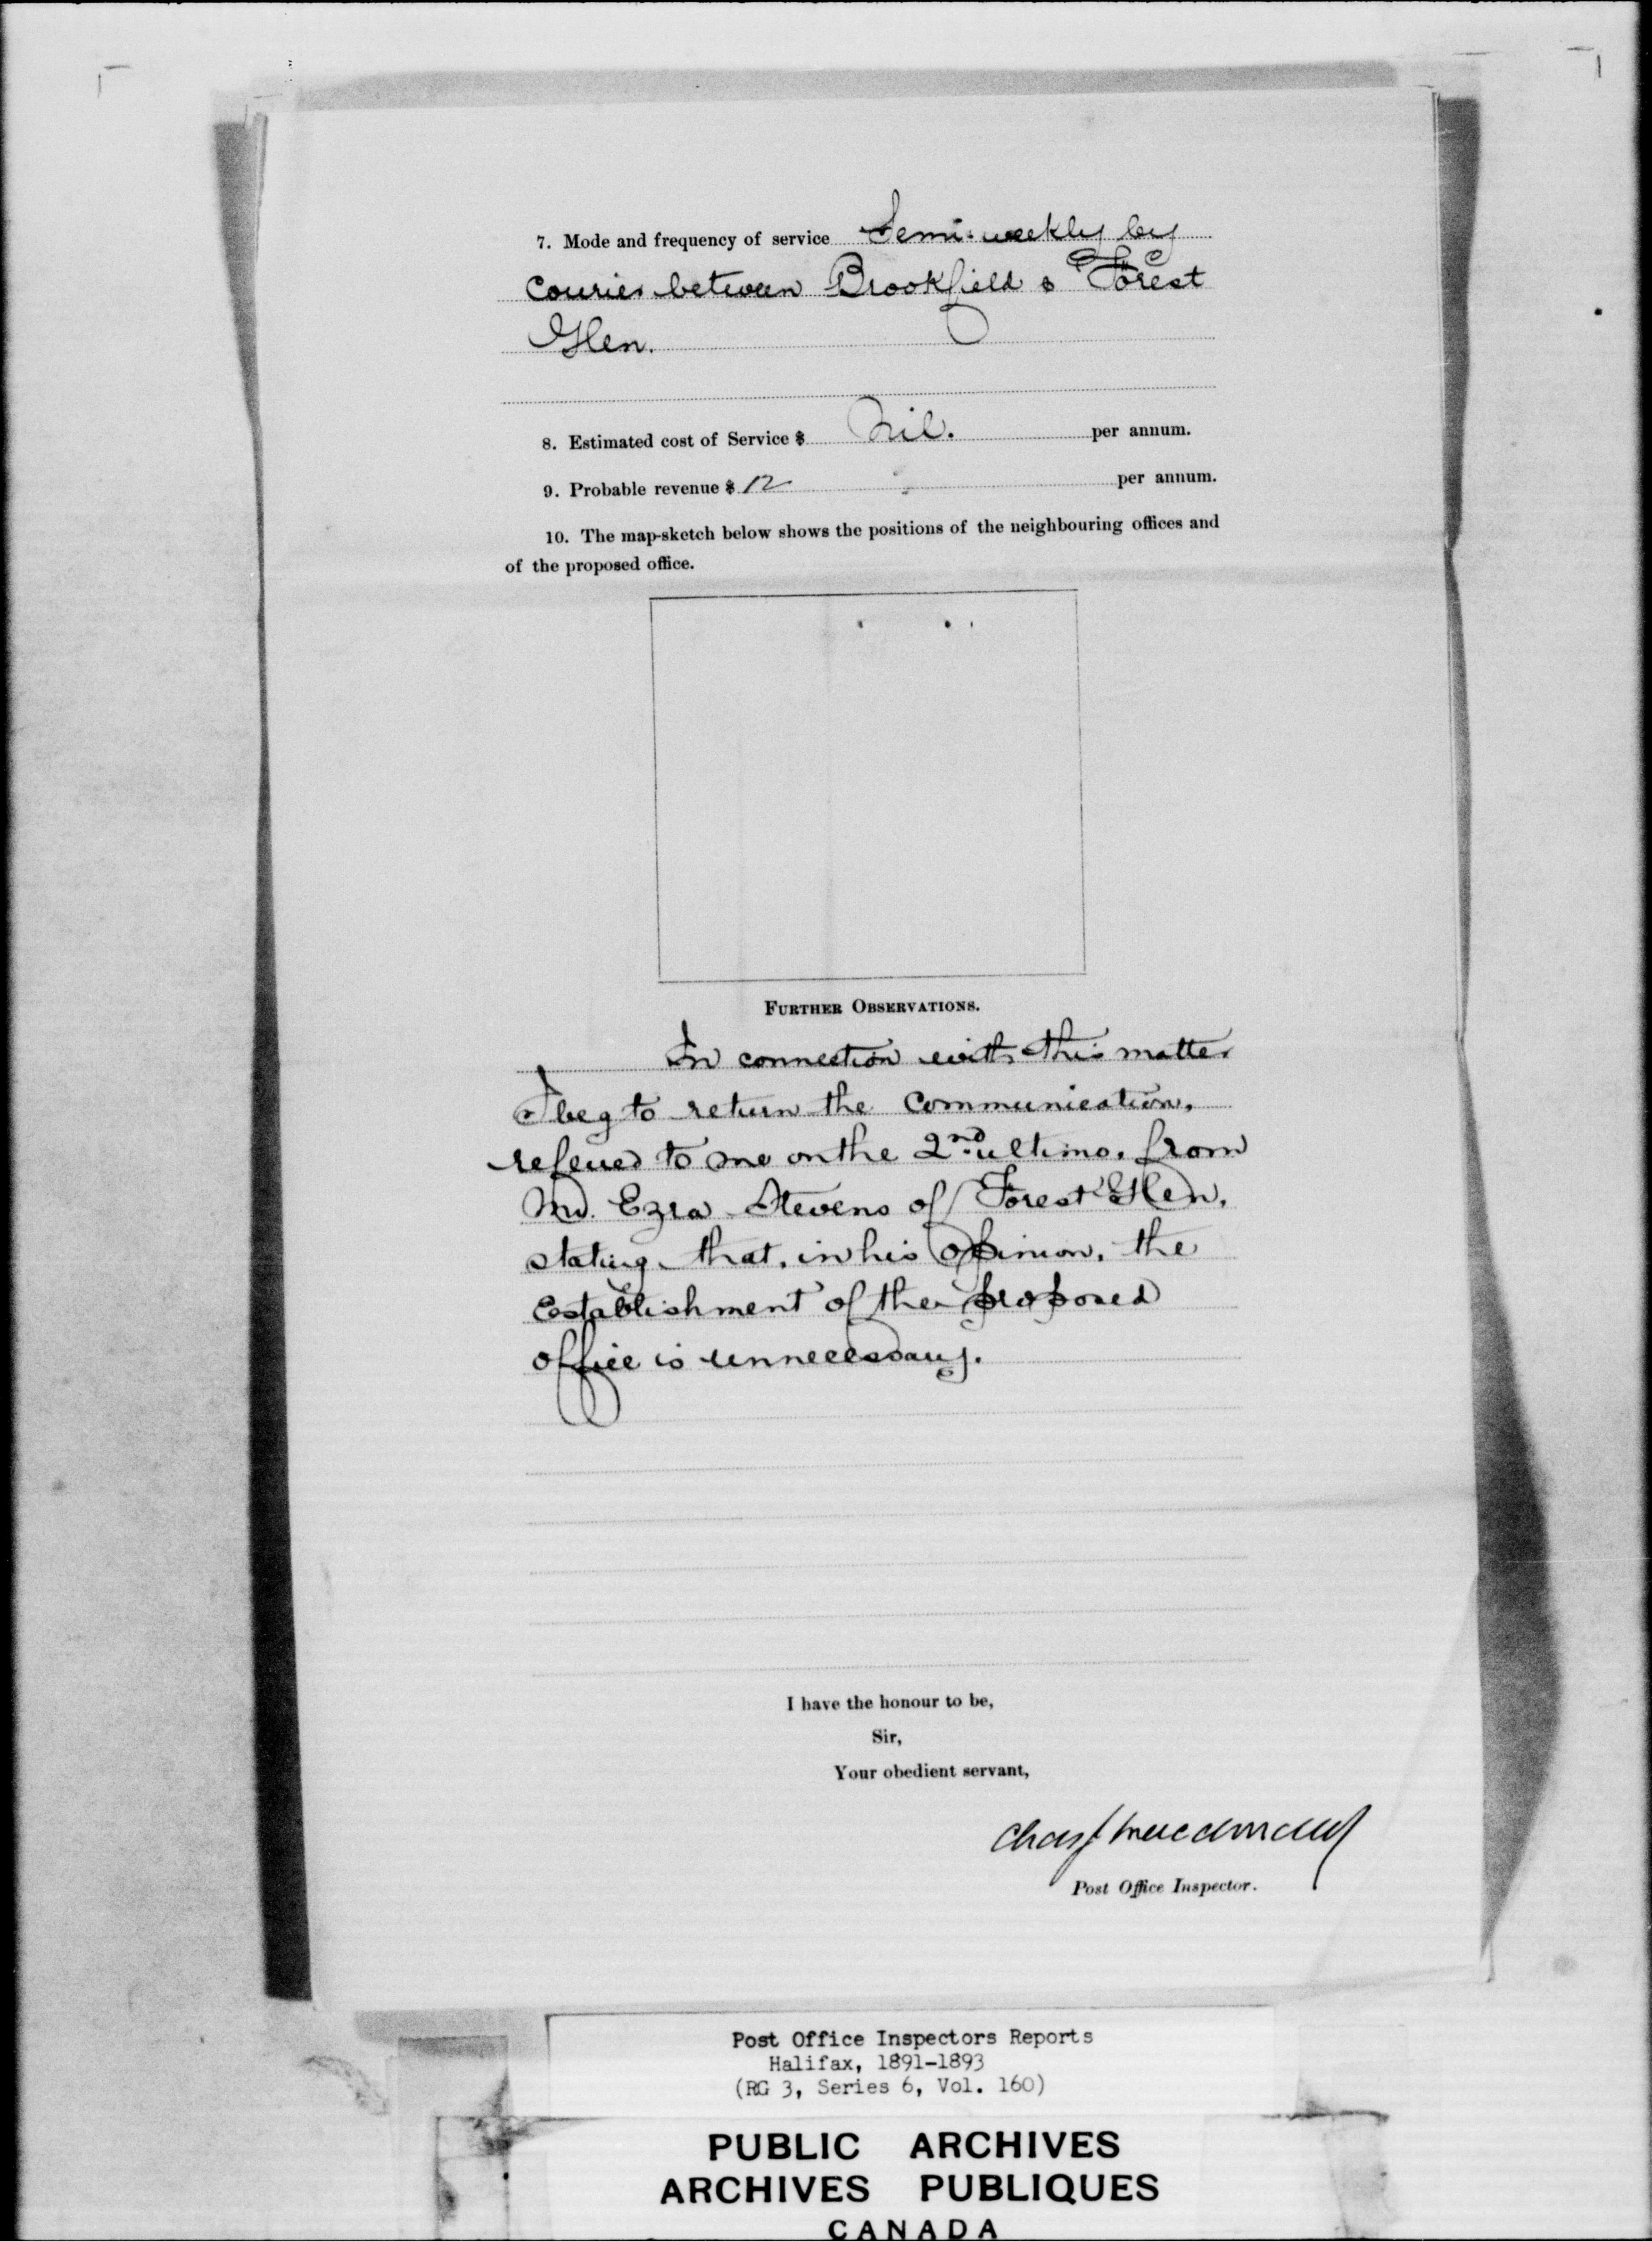 7. Mode and frequency of service Semi-weekly by
courier between Brookfield & Forest
Glen.
8. Estimated cost of Service $ Nil. per annum.
9. Probable revenue $ 12 per annum.
10. The map-sketch below shows the positions of the neighbouring offices and
of the proposed office.
FURTHER OBSERVATIONS.
In connection with this matter
I beg to return the communication,
referred to me on the 2nd ultimo, from
Mr. Ezra Stevens of Forest Glen,
stating that, in his opinion, the
Establishment of the proposed
office is unnecessary.
I have the honour to be,
Sir,
Your obedient servant,
Post Office Inspector.
Post Office Inspectors Reports
Halifax, 1891-1893
(RG 3, Series 6, Vol. 160)
PUBLIC ARCHIVES
ARCHIVES PUBLIQUES
CANADA